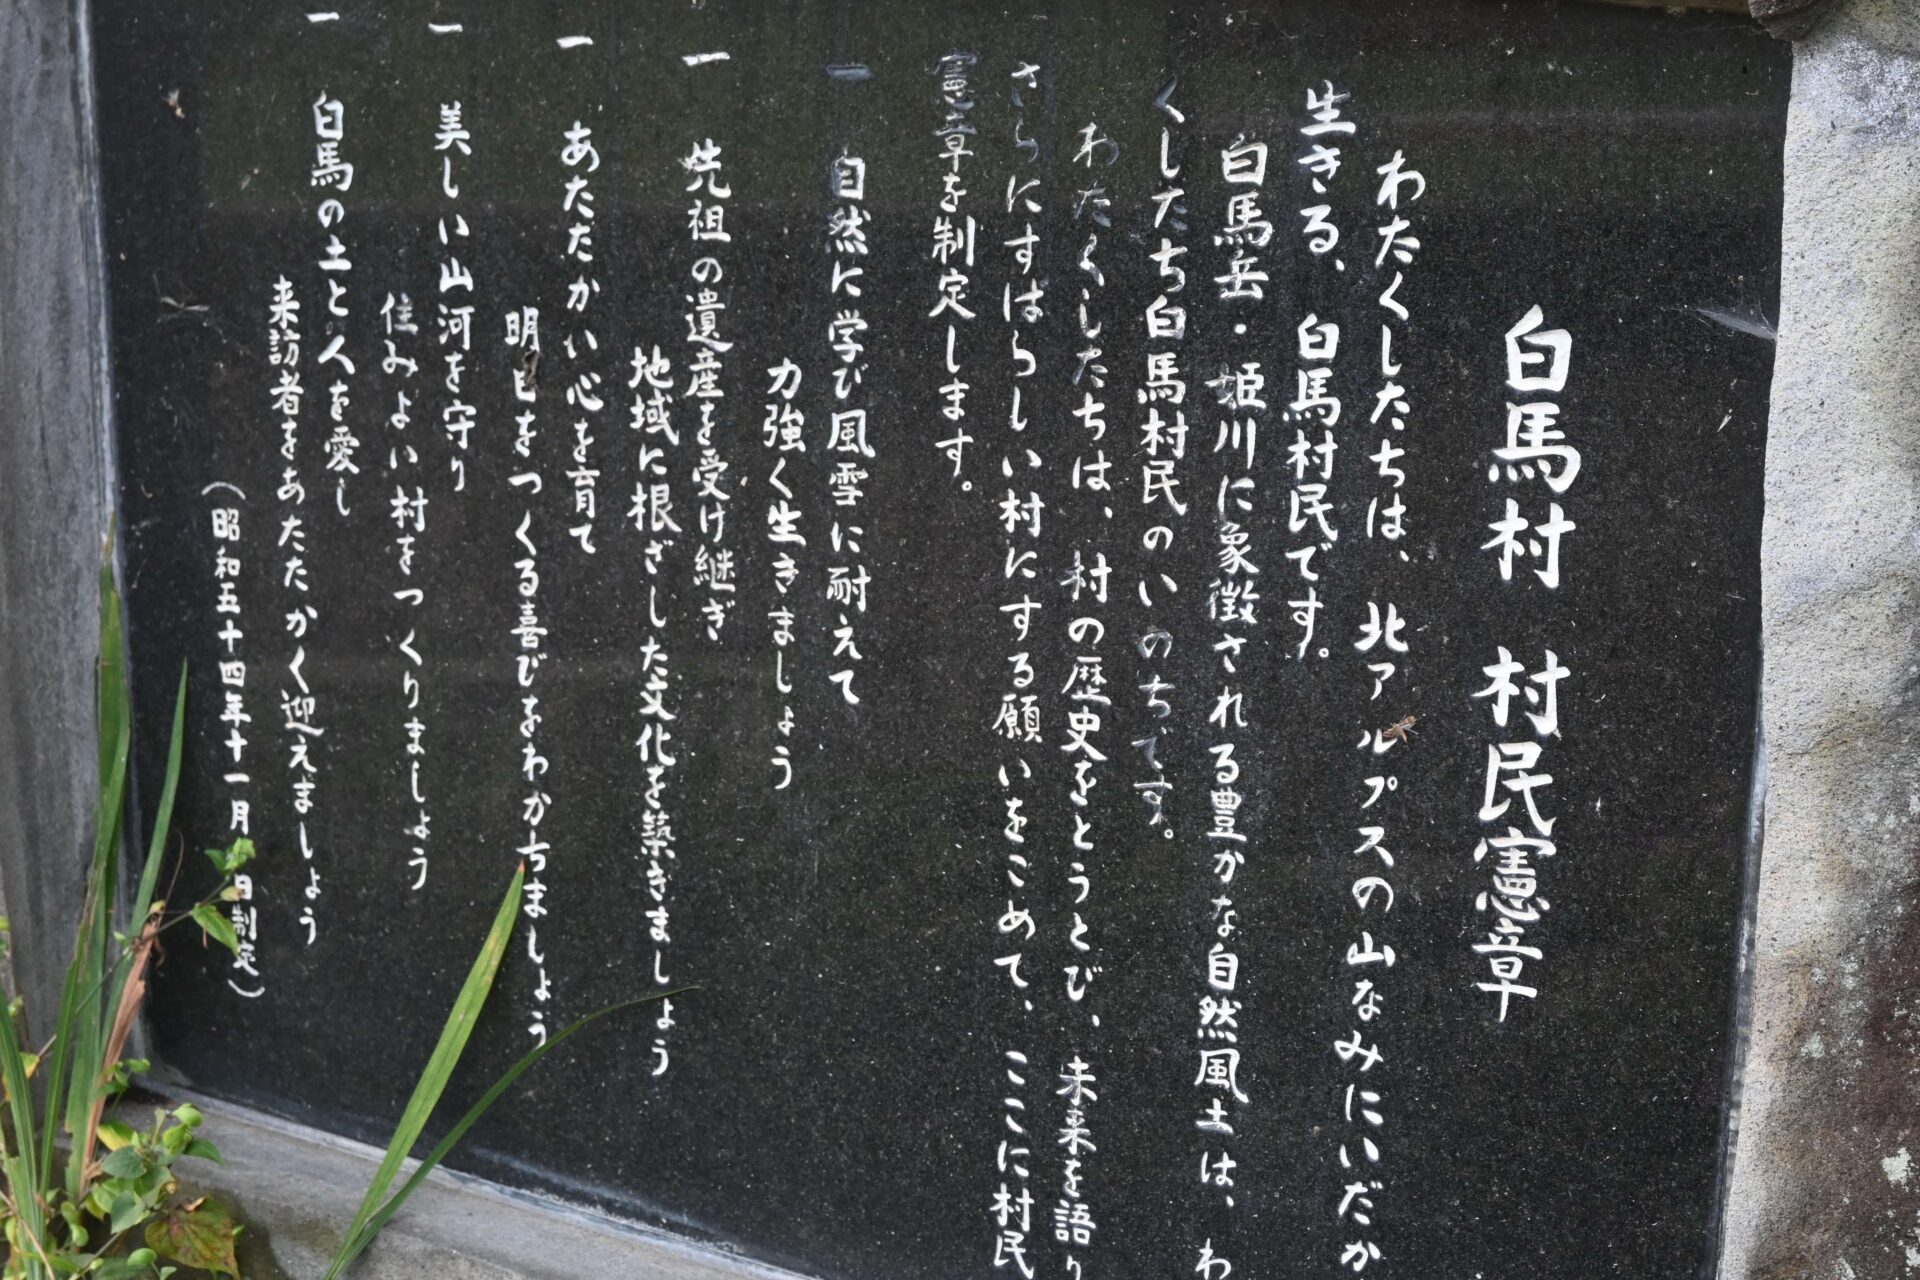 白馬村 村民憲章
わたくしたちは、北アルプスの山なみにいだか
生きる、白馬村民です。
白馬岳・姫川に象徴される豊かな自然風土は、わ
くしたち白馬村民のいのちです。
わたくしたちは、村の歴史をとうとび、未来を語り
さらにすばらしい村にする願いをこめて、ここに村民
憲章を制定します。
一 自然に学び風雪に耐えて
力強く生きましょう
一 先祖の遺産を受け継ぎ
地域に根ざした文化を築きましょう
一 あたたかい心を育て
明日をつくる喜びをわかちましょう
一 美しい山河を守り
住みよい村をつくりましょう
一 白馬の土と人を愛し
来訪者をあたたかく迎えましょう
（昭和五十四年十一月 日制定）